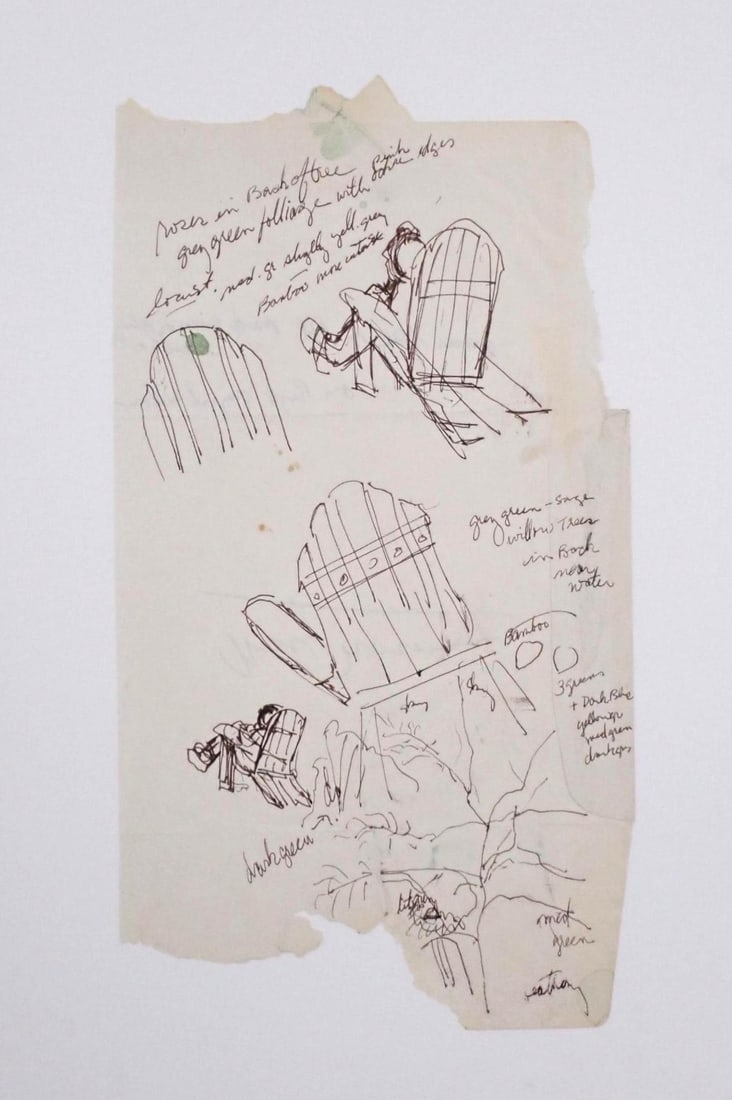 roses in Back of tree pink
grey green folliage with some edges
locust. med. gr slightly yell. grey
Bamboo more intense
grey green - sage
willow Trees
in Back
near
water
Bamboo
3 greens
+ Dark Blue
yellow gr
med green
dark green
mext
green